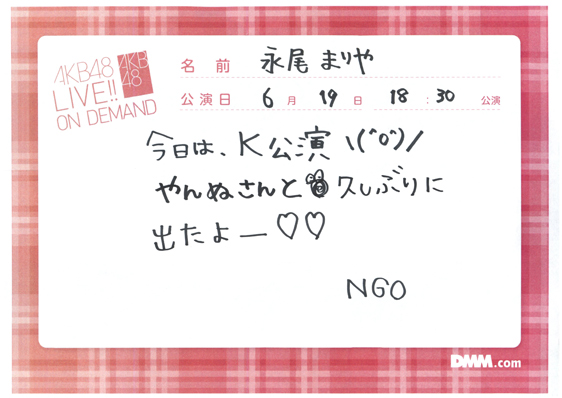 AKB48
LIVE!!
ON DEMAND
AKB
48
名前 永尾まりや
公演日 6月19日 18:30公演
今日は、K公演\(^o^)/
やんぬさんと久しぶりに
出たよー♡♡
NGO
DMM.com